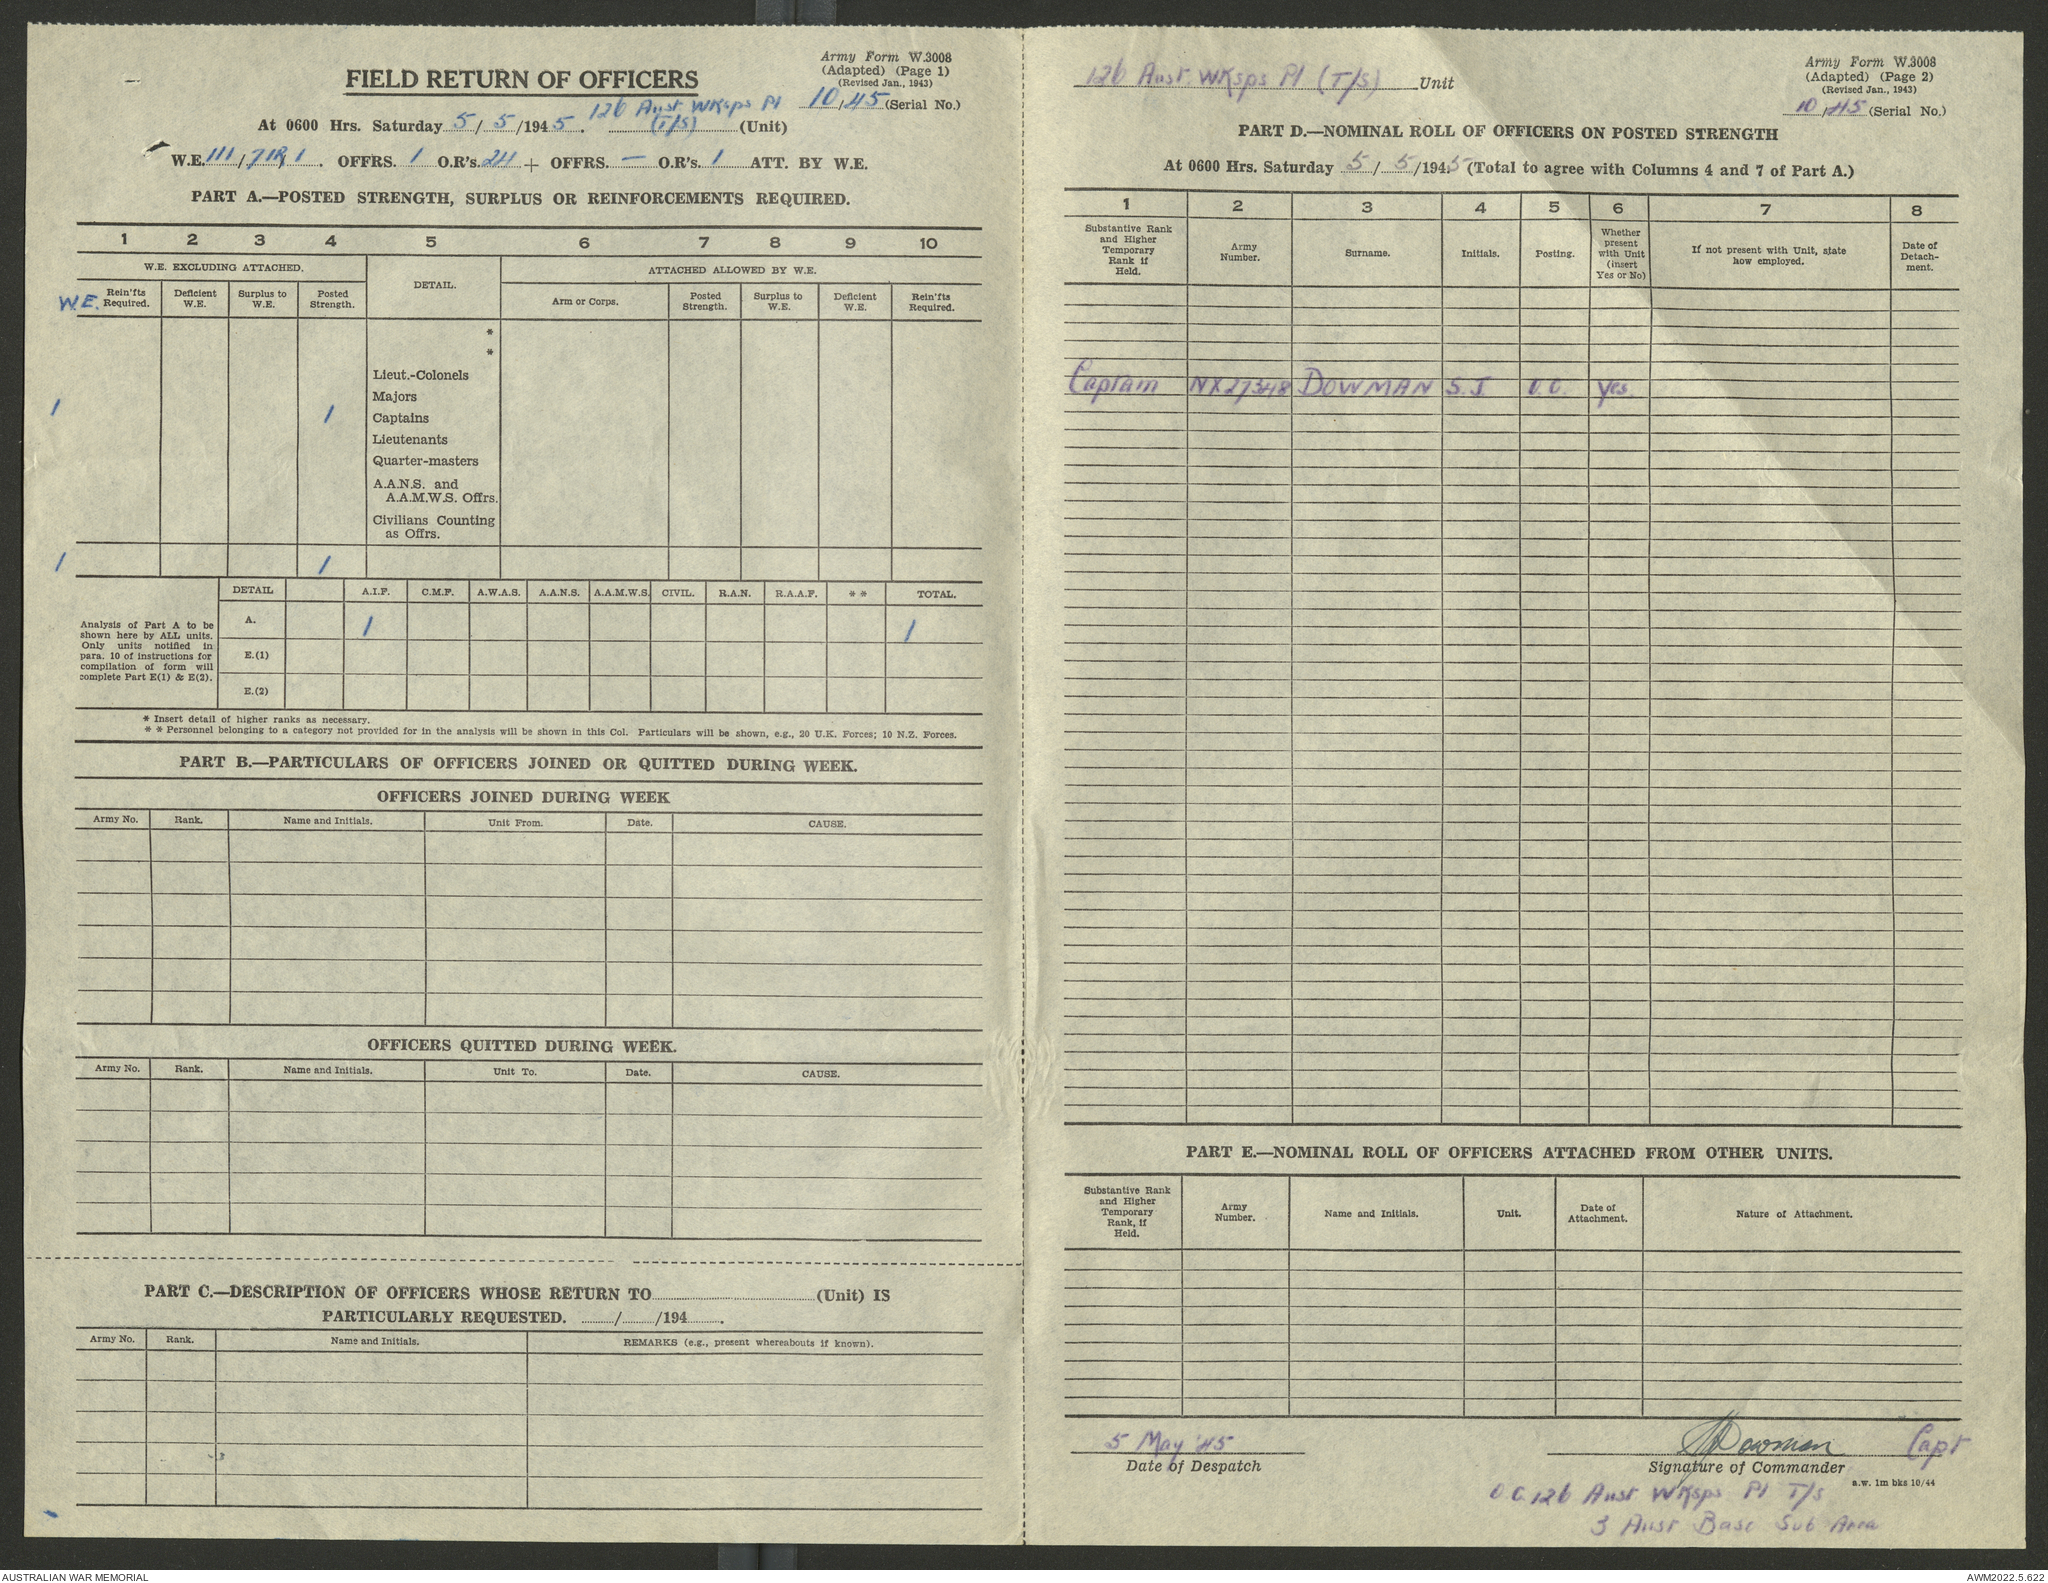 Army Form W.3008
FIELD RETURN OF OFFICERS
(Adapted) (Page 1)
(Revised Jan., 1943)
126 Aust WKsps Pl 10/45 (Serial No.)
At 0600 Hrs. Saturday 5/5/1945. (T/S) (Unit)
W.E. 111/71R/1. OFFRS. 1 O.R's. 24 + OFFRS. — O.R's. 1 ATT. BY W.E.
PART A.—POSTED STRENGTH, SURPLUS OR REINFORCEMENTS REQUIRED.
1 2 3 4 5 6 7 8 9 10
W.E. EXCLUDING ATTACHED. DETAIL. ATTACHED ALLOWED BY W.E.
W.E. Rein'fts Required. Deficient W.E. Surplus to W.E. Posted Strength. Arm or Corps. Posted Strength. Surplus to W.E. Deficient W.E. Rein'fts Required.
*
*
Lieut.-Colonels
Majors
1 1 Captains
Lieutenants
Quarter-masters
A.A.N.S. and
A.A.M.W.S. Offrs.
Civilians Counting
as Offrs.
1 1
DETAIL A.I.F. C.M.F. A.W.A.S. A.A.N.S. A.A.M.W.S. CIVIL. R.A.N. R.A.A.F. ** TOTAL.
Analysis of Part A to be
shown here by ALL units.
Only units notified in
para. 10 of instructions for
compilation of form will
complete Part E(1) & E(2).
A. 1 1
E.(1)
E.(2)
* Insert detail of higher ranks as necessary.
* * Personnel belonging to a category not provided for in the analysis will be shown in this Col. Particulars will be shown, e.g., 20 U.K. Forces; 10 N.Z. Forces.
PART B.—PARTICULARS OF OFFICERS JOINED OR QUITTED DURING WEEK.
OFFICERS JOINED DURING WEEK
Army No. Rank. Name and Initials. Unit From. Date. CAUSE.
OFFICERS QUITTED DURING WEEK.
Army No. Rank. Name and Initials. Unit To. Date. CAUSE.
PART C.—DESCRIPTION OF OFFICERS WHOSE RETURN TO (Unit) IS
PARTICULARLY REQUESTED. / /194 .
Army No. Rank. Name and Initials. REMARKS (e.g., present whereabouts if known).
126 Aust WKsps Pl (T/S) Unit
Army Form W.3008
(Adapted) (Page 2)
(Revised Jan., 1943)
10/45 (Serial No.)
PART D.—NOMINAL ROLL OF OFFICERS ON POSTED STRENGTH
At 0600 Hrs. Saturday 5/5/1945 (Total to agree with Columns 4 and 7 of Part A.)
1 2 3 4 5 6 7 8
Substantive Rank and Higher Temporary Rank if Held. Army Number. Surname. Initials. Posting. Whether present with Unit (insert Yes or No) If not present with Unit, state how employed. Date of Detach-ment.
Captain NX27348 DOWMAN S.J O.C. Yes.
PART E.—NOMINAL ROLL OF OFFICERS ATTACHED FROM OTHER UNITS.
Substantive Rank and Higher Temporary Rank, if Held. Army Number. Name and Initials. Unit. Date of Attachment. Nature of Attachment.
5 May '45 SJDowman Capt
Date of Despatch Signature of Commander
a.w. 1m bks 10/44
O.C. 126 Aust WKsps Pl T/S
3 Aust Base Sub Area
AUSTRALIAN WAR MEMORIAL AWM2022.5.622